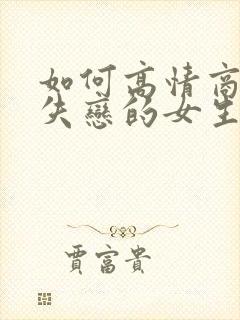 如何高情商
失戀的女生
賈富貴